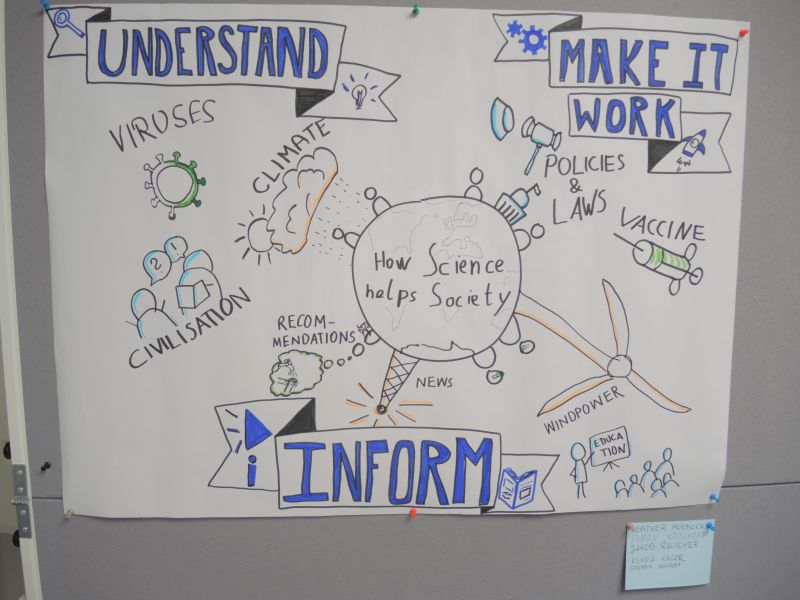 UNDERSTAND
MAKE IT
WORK
VIRUSES
CLIMATE
POLICIES
&
LAWS
VACCINE
How Science
helps Society
?
!
CIVILISATION
RECOM-
MENDATIONS
NEWS
WINDPOWER
i
INFORM
EDUCA
TION
HEATHER MURDOCK
JAKOB RAUSCHER
KLARA